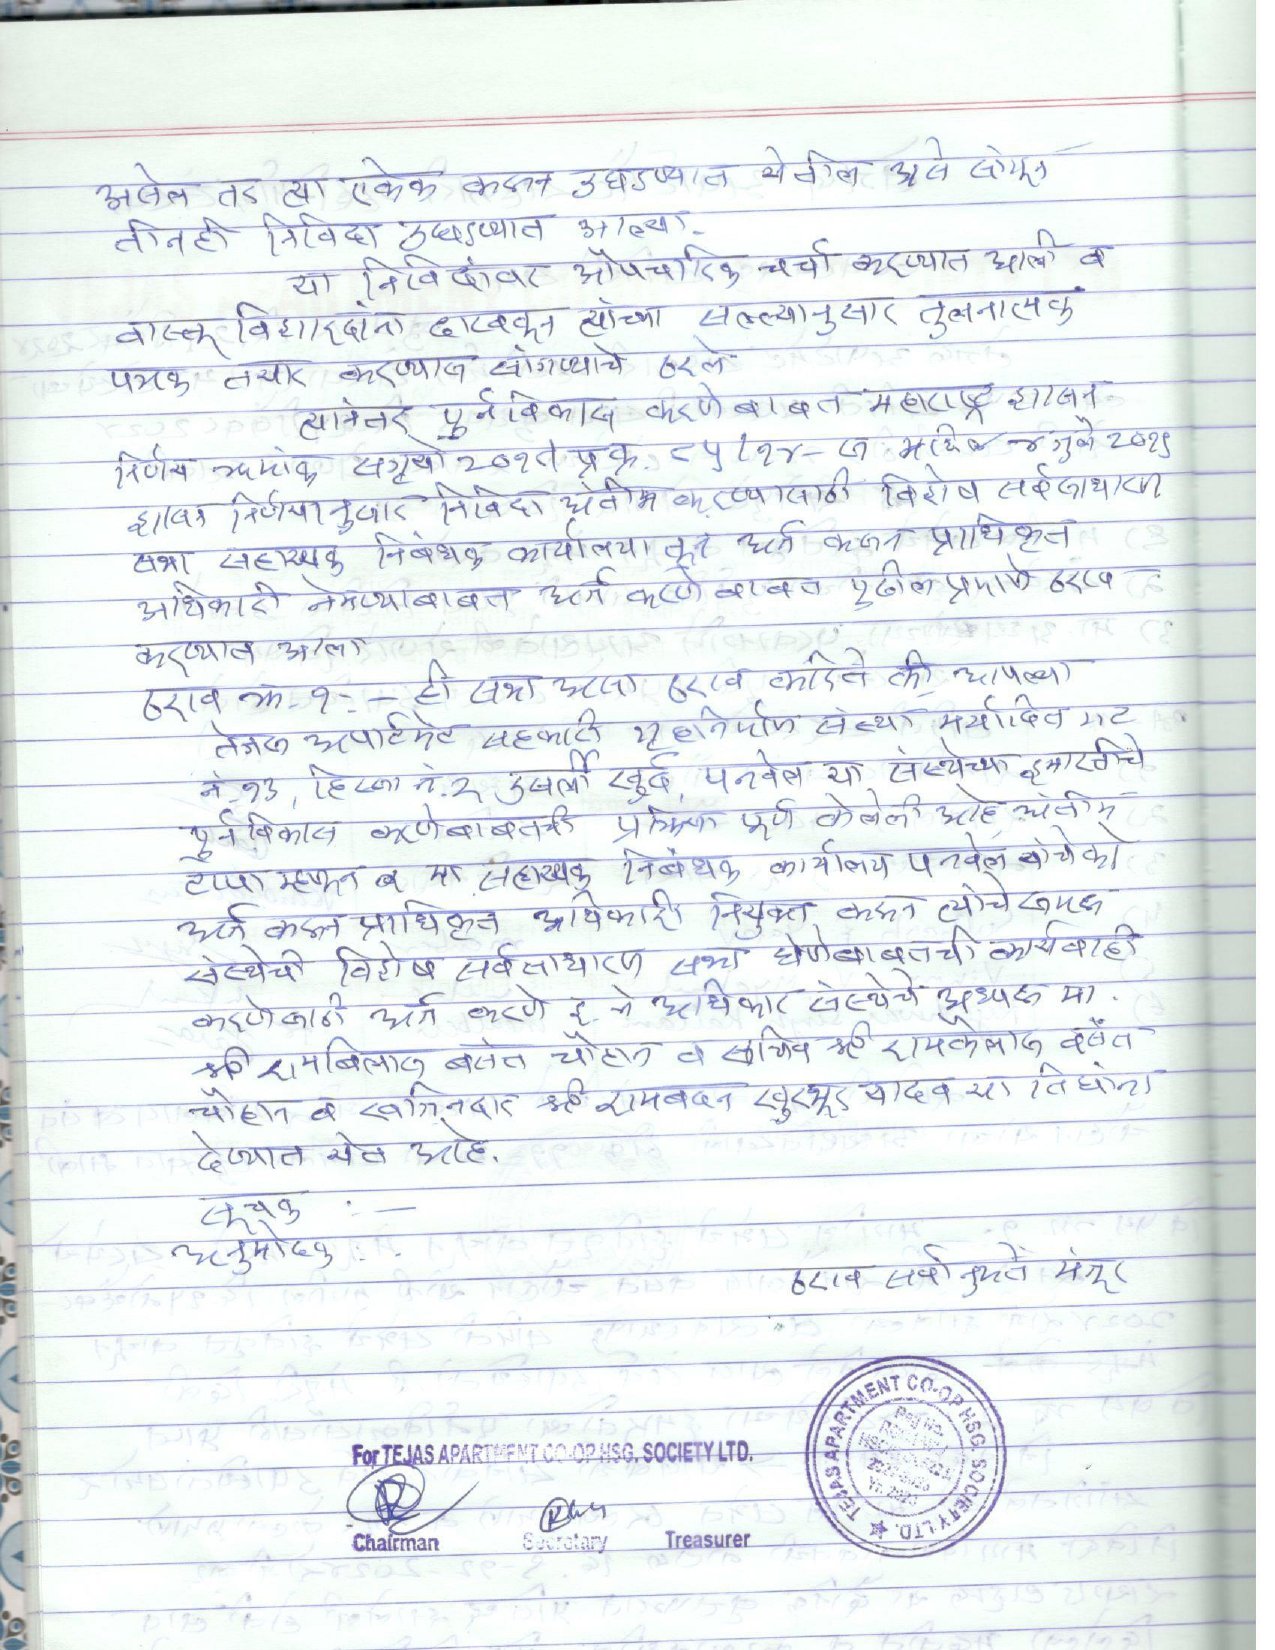 असेल तर त्या एकेक करून उघडण्यात येतील असे सांगून
तीनही निविदा उघडण्यात आल्या.
या निविदांवर औपचारिक चर्चा करण्यात आली व
वास्तू विशारदांना दाखवून त्यांच्या सल्ल्यानुसार तुलनात्मक
पत्रक तयार करण्यास सांगण्याचे ठरले
त्यानंतर पुर्नविकास करणेबाबत महाराष्ट्र शासन
निर्णय क्रमांक सगृयो २०१९ प्र.क्र. ८५/१४- स दिनांक ४ जुलै २०१९
शासन निर्णयानुसार निविदा अंतीम करण्यासाठी विशेष सर्वसाधारण
सभा सहाय्यक निबंधक कार्यालयातून अर्ज करून प्राधिकृत
अधिकारी नेमण्याबाबत अर्ज करणेबाबत पुढील प्रमाणे ठराव
करण्यात आला
ठराव क्र. १:- ही सभा असा ठराव करिते की आपल्या
तेजस अपार्टमेंट सहकारी गृहनिर्माण संस्था मर्यादित गट
नं. १३, हिस्सा नं. २ उसर्ली खुर्द, पनवेल या संस्थेच्या इमारतीचे
पुर्नविकास करणेबाबतची प्रक्रिया पूर्ण केलेली आहे अंतीम
टप्पा म्हणून व मा. सहाय्यक निबंधक कार्यालय पनवेल यांचेकडे
अर्ज करून प्राधिकृत अधिकारी नियुक्त करून त्यांचे समक्ष
संस्थेची विशेष सर्वसाधारण सभा घेणेबाबतची कार्यवाही
करणेसाठी अर्ज करणे इ. चे अधिकार संस्थेचे अध्यक्ष मा.
श्री रामबिलास बसंत चौहान व सचिव श्री रामकैलास बसंत
चौहान व खजिनदार श्री रामबदन खुरभूर यादव या तिघांना
देण्यात येत आहे.
सूचक :-
अनुमोदक :-
ठराव सर्वानुमते मंजूर
For TEJAS APARTMENT CO-OP.HSG. SOCIETY LTD.
TEJAS APARTMENT CO-OP HSG. SOCIETY LTD.
Chairman Secretary Treasurer